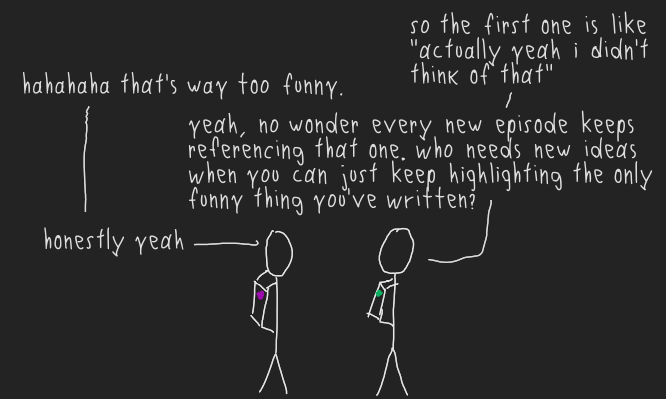 so the first one is like
"actually yeah i didn't
think of that"
hahahaha that's way too funny.
yeah, no wonder every new episode keeps
referencing that one. who needs new ideas
when you can just keep highlighting the only
funny thing you've written?
honestly yeah